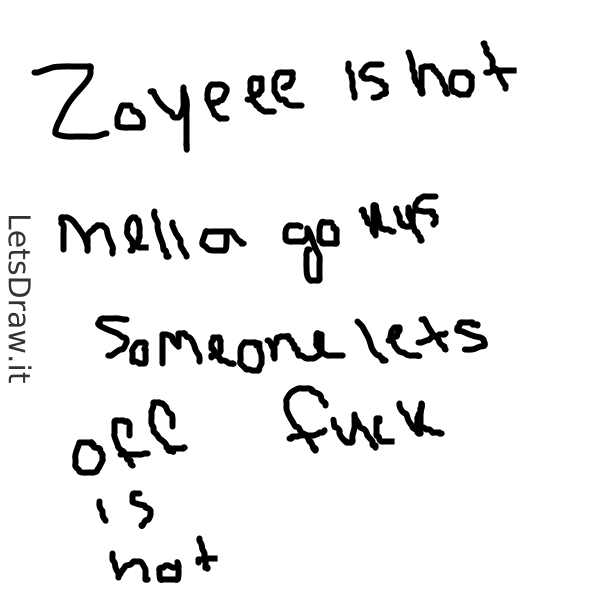 Zoyeee is hot
mella go kys
someone lets
off fuck
is
hot
LetsDraw.it